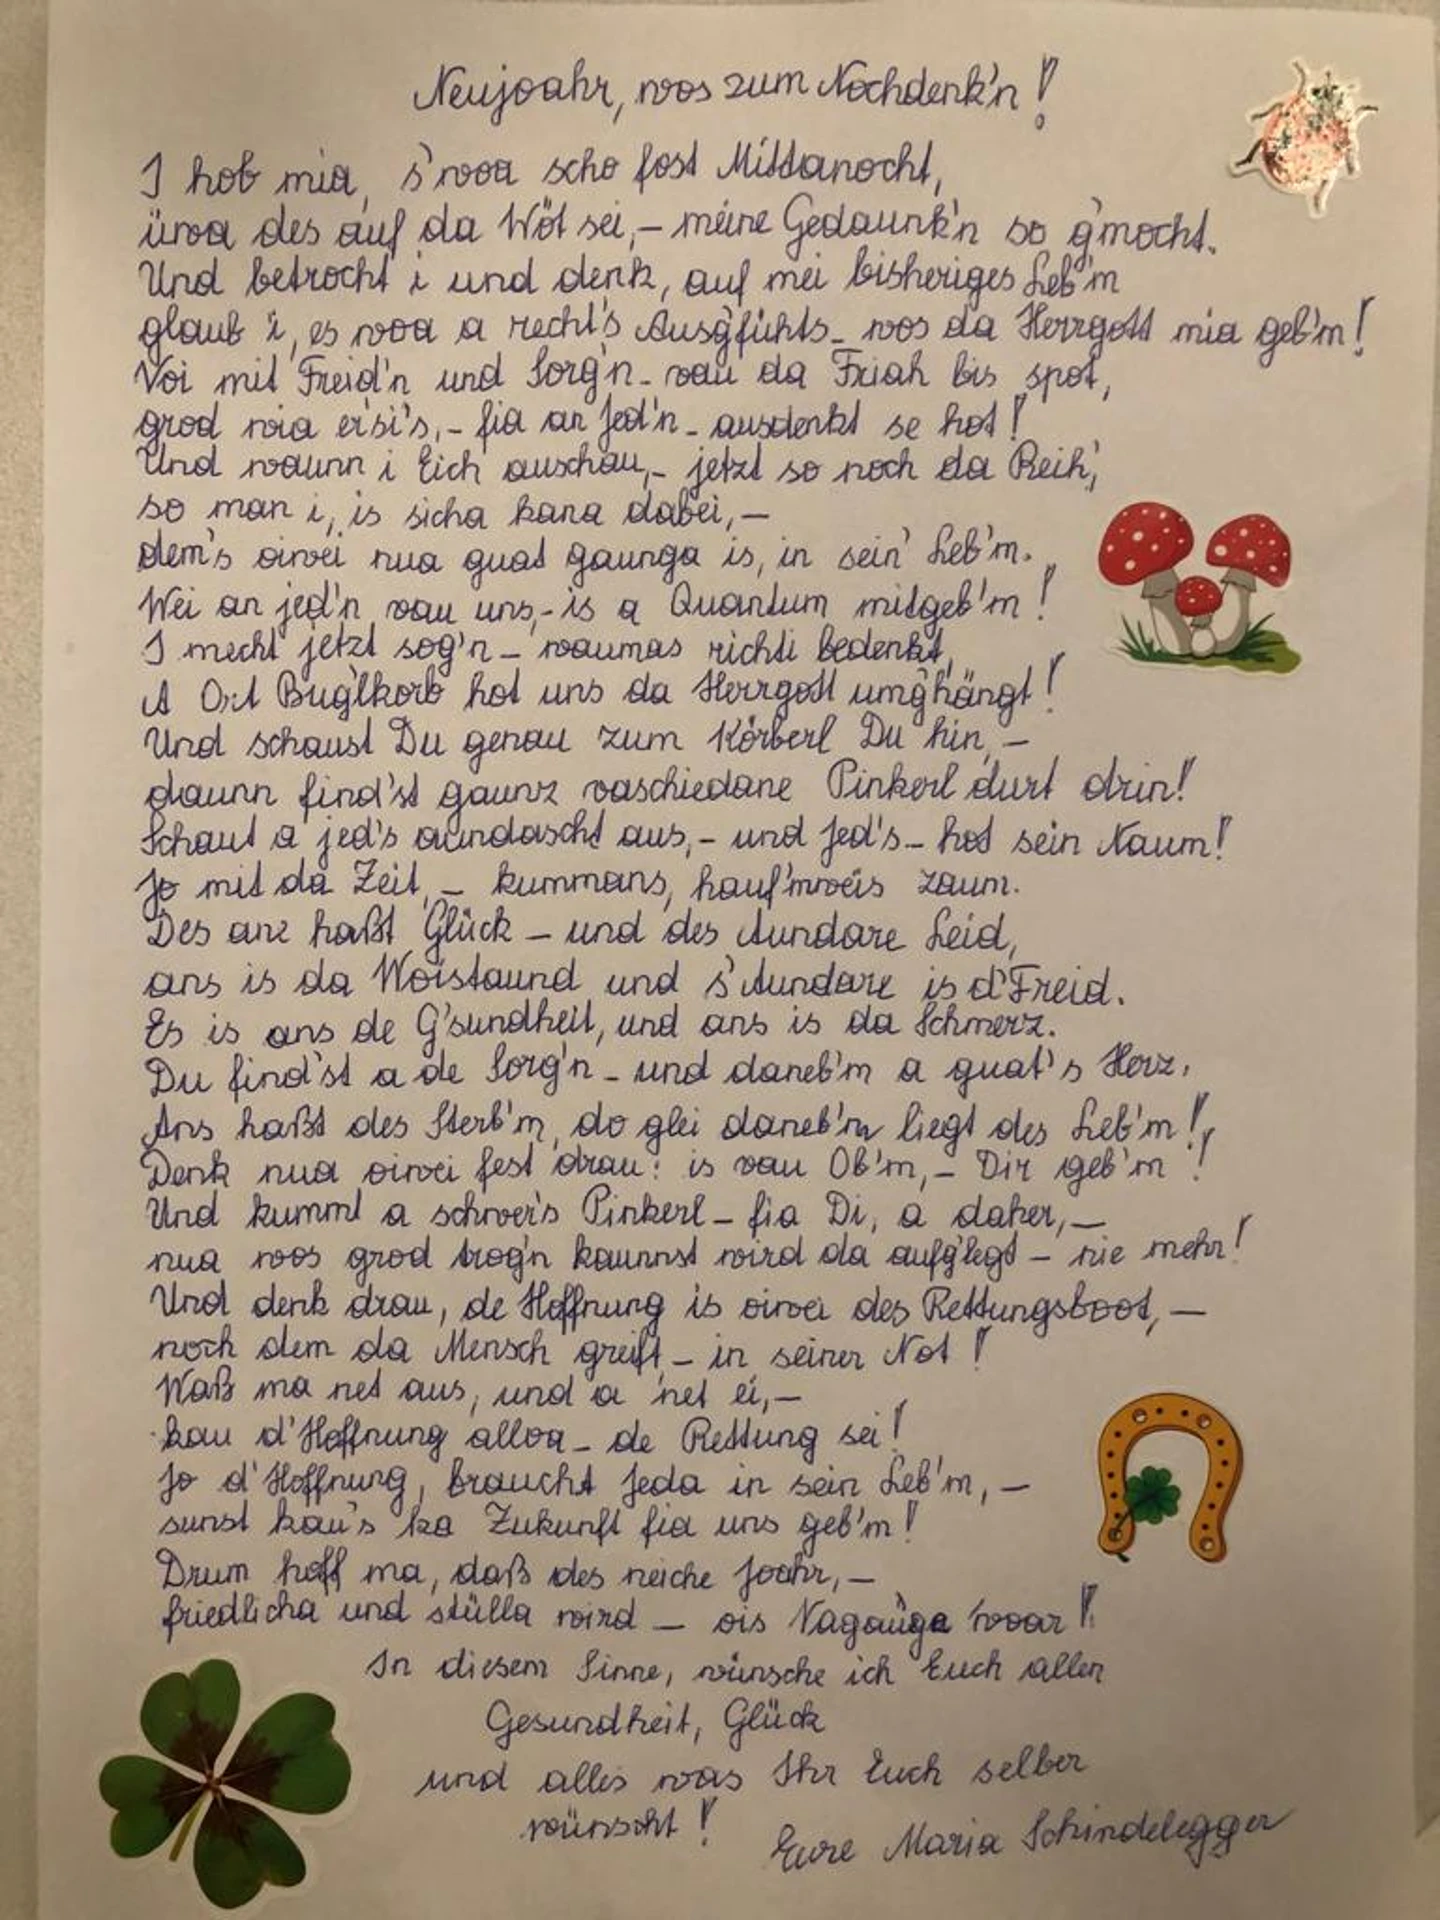 Neujoahr, wos zum Nochdenk'n!
I hob mia, s'woa scho fost Mittanocht,
üwa des auf da Wöt sei,- meine Gedaunk'n so g'mocht.
Und betrocht i und denk, auf mei bisheriges Leb'm
glaub i, es woa a recht's Ausg'fühts - wos da Herrgott mia geb'm!
Voi mit Freid'n und Sorg'n - vau da Friah bis spot,
grod wia er'si's,- fia an jed'n - ausdenkt se hot!
Und waunn i Eich auschau,- jetzt so noch da Reih',
so man i, is sicha kana dabei,-
dem's oiwei nua guat gaunga is, in sein' Leb'm.
Wei an jed'n vau uns,- is a Quantum mitgeb'm!
I mecht jetzt sog'n - waumas richti bedenkt,
A Ort Bug'lkorb hot uns da Herrgott umg'hängt!
Und schaust Du genau zum Körberl Du hin,-
daunn find'st gaunz vaschiedane Pinkerl durt drin!
Schaut a jed's aundascht aus,- und jed's - hot sein Naum!
Jo mit da Zeit,- kummans, hauf'mweis zaum.
Des anz haßt Glück - und des Aundare Leid,
ans is da Woistaund und s'Aundare is d'Freid.
Es is ans de G'sundheit, und ans is da Schmerz.
Du find'st a de Sorg'n - und daneb'm a guat's Herz.
Ans haßt des Sterb'm, do glei daneb'm liegt des Leb'm!
Denk nua oiwei fest drau: is vau Ob'm,- Dir geb'm!
Und kummt a schwer's Pinkerl - fia Di, a daher,-
nua wos grod trog'n kaunnst wird da aufg'legt - nie mehr!
Und denk drau, de Hoffnung is oiwei des Rettungsboot,-
noch dem da Mensch greift - in seiner Not!
Waß ma net aus, und a net ei,-
kau d'Hoffnung alloa - de Rettung sei!
Jo d'Hoffnung, braucht jeda in sein Leb'm,-
sunst kau's ka Zukunft fia uns geb'm!
Drum hoff ma, daß des neiche Joahr,-
friedlicha und stülla wird - ois Vagauga woar!
In diesem Sinne, wünsche ich Euch allen
Gesundheit, Glück
und alles was Ihr Euch selber
wünscht!
Eure Maria Schindelegger